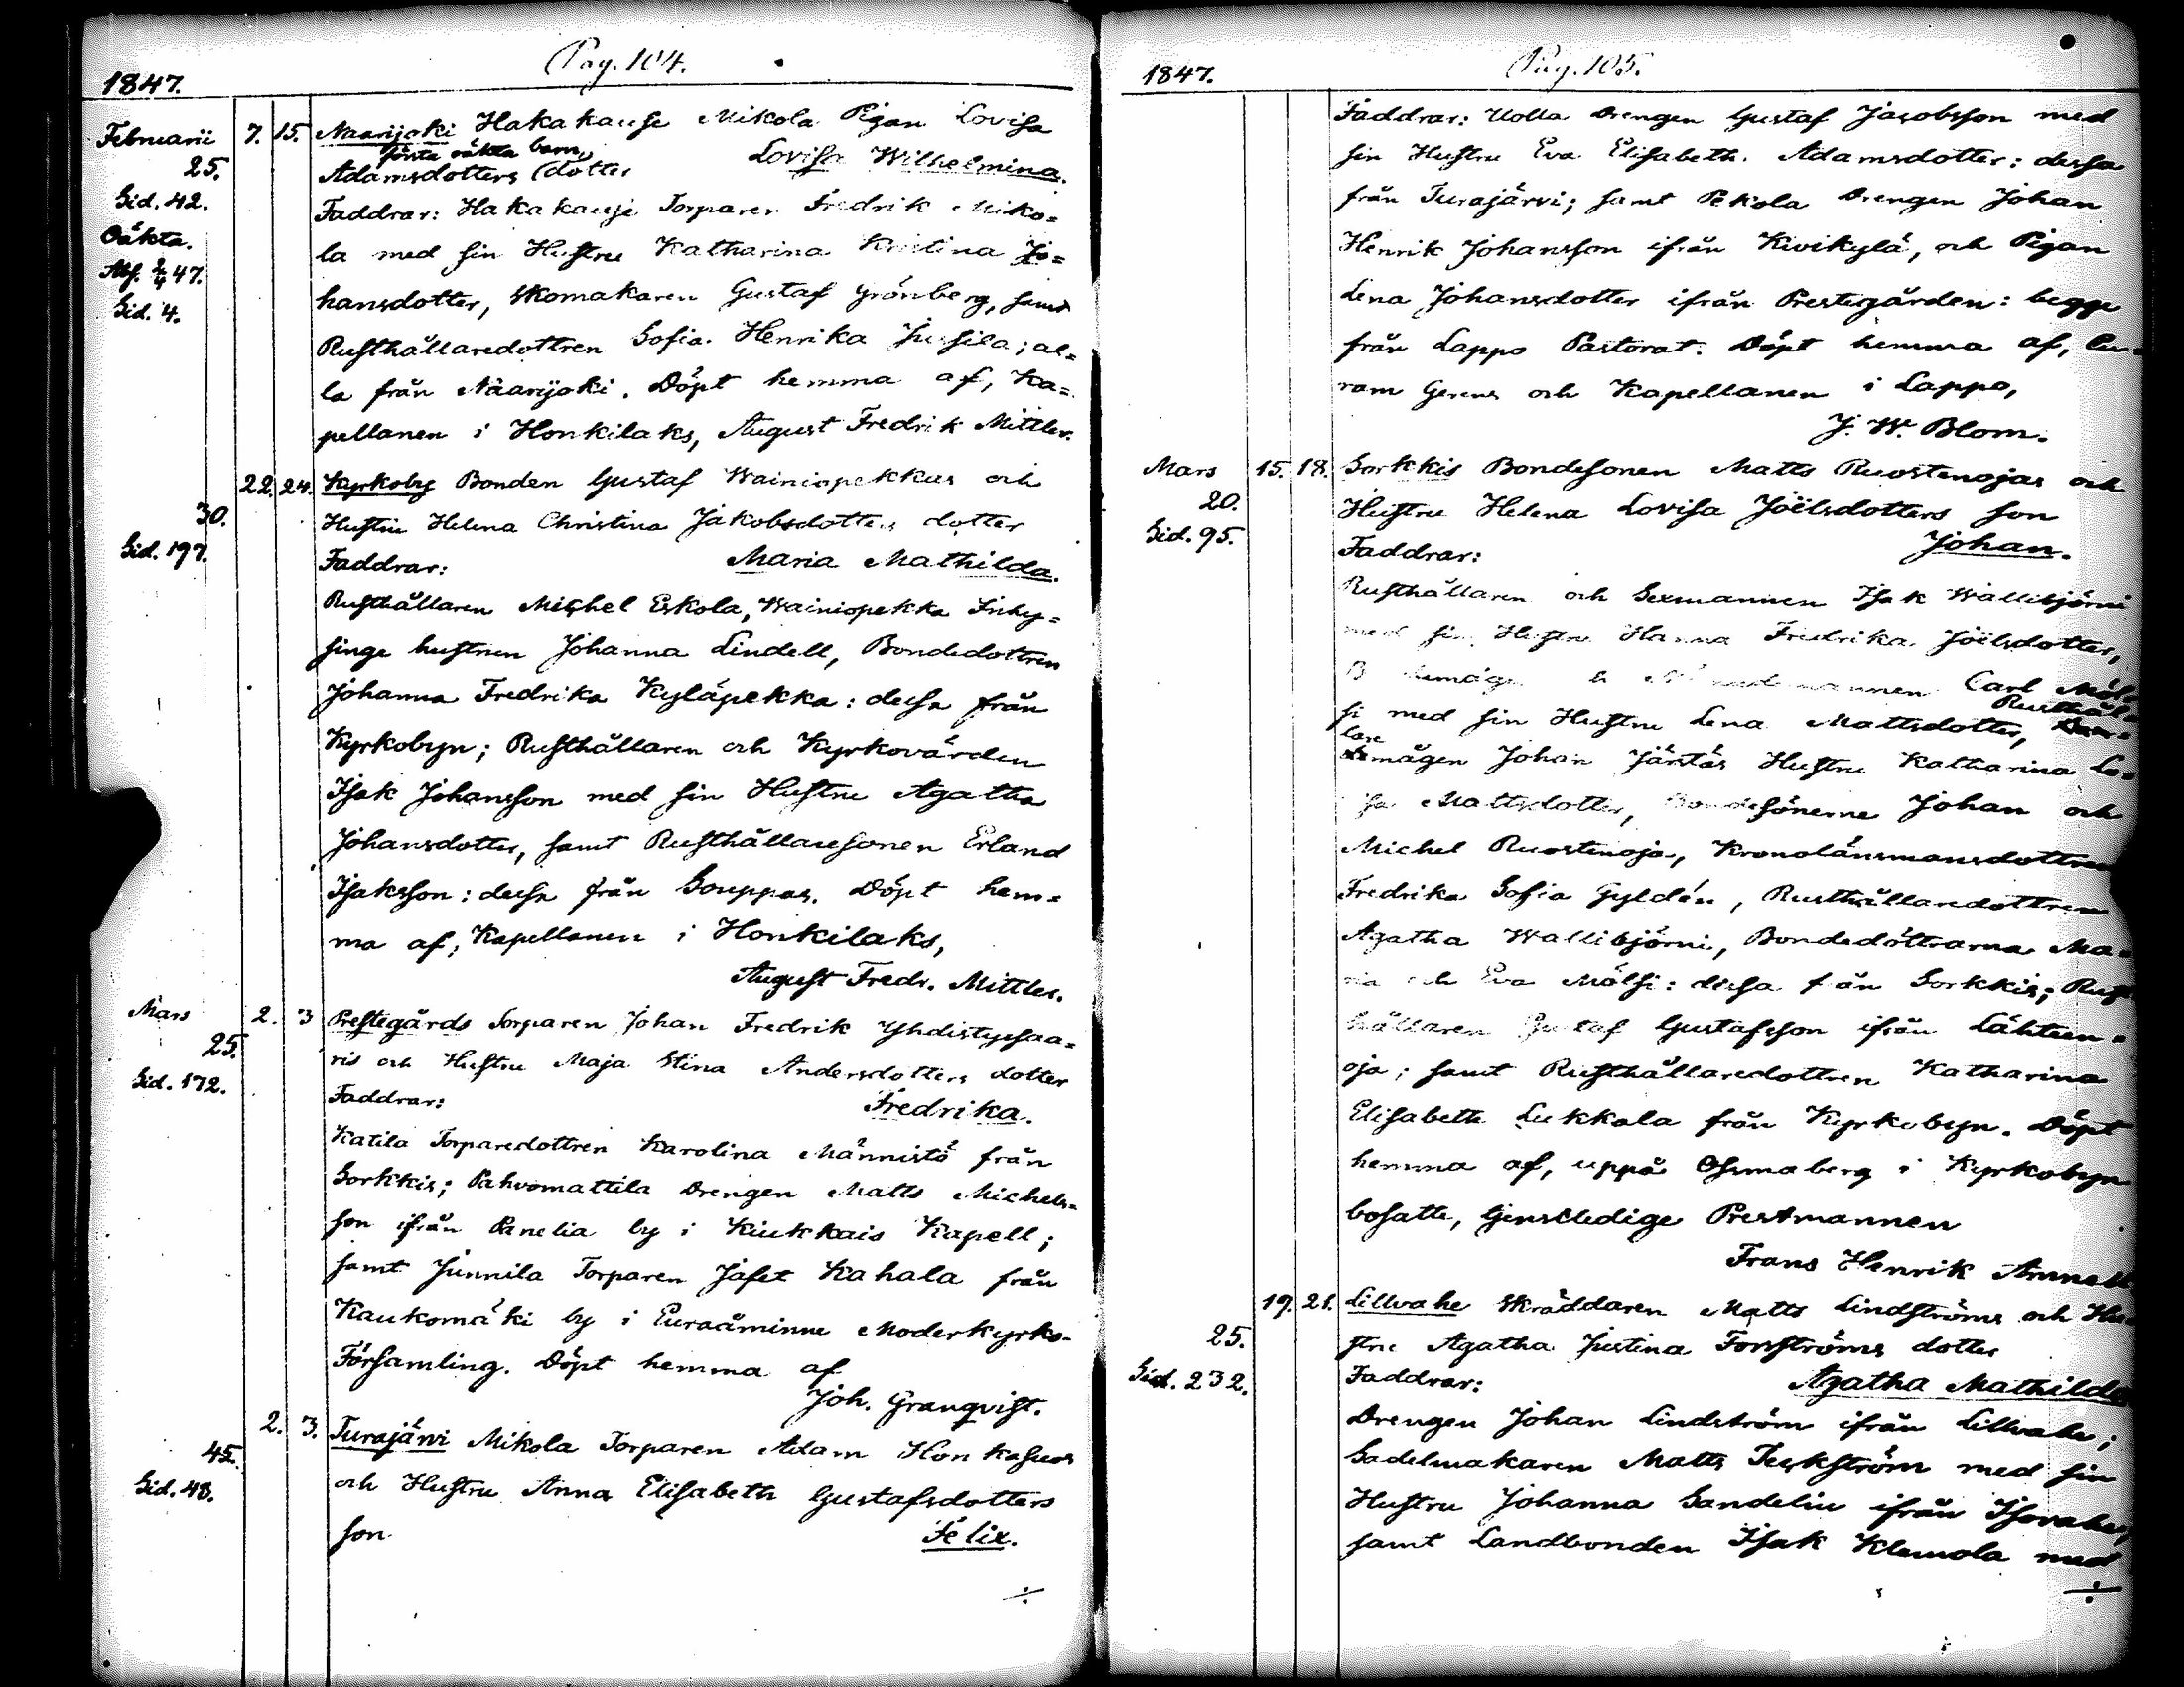 Pag. 104.
1847.
Februarii 7. 15. Naarijoki Hakakause Mikola Pigan Lovisa
första oäkta barn,
25. Adamsdotters dotter Lovisa Wilhelmina.
Sid. 42. Faddrar: Hakakause Torparen Fredrik Miko=
Oäkta. la med sin Hustru Katharina Kristina Jo=
Abs. 2/4 47. hansdotter, Skomakaren Gustaf Grönberg, samt
Sid. 4. Rusthållaredottren Sofia Henrika Jussila; al=
la från Naarijoki. Döpt hemma af, Ka=
pellanen i Honkilaks, August Fredrik Mittler.
22. 24. Kyrkoby Bonden Gustaf Wainiopekkas och
30. Hustru Helena Christina Jakobsdotters dotter
Sid. 197. Faddrar: Maria Mathilda.
Rusthållaren Michel Eskola, Wainiopekka Inhy=
singe hustrun Johanna Lindell, Bondedottren
Johanna Fredrika Kyläpekka: dessa från
Kyrkobyn; Rusthållaren och Kyrkovärden
Isak Johansson med sin Hustru Agatha
Johansdotter, samt Rusthållaresonen Erland
Isaksson: dessa från Souppas. Döpt hem=
ma af, Kapellanen i Honkilaks,
August Fredr. Mittler.
Mars 2. 3 Prestegårds Torparen Johan Fredrik Yhdistyssaa=
25. ris och Hustru Maja Stina Andersdotters dotter
Sid. 172. Faddrar: Fredrika.
Katila Torparedottren Karolina Männistö från
Sorkkis; Pahvomattila Drengen Matts Michels=
son ifrån Panelia by i Kiukkais Kapell;
samt Junnila Torparen Jafet Kahala från
Kaukomäki by i Euraåminne Moderkyrko-
Församling. Döpt hemma af
Joh. Granqvist.
2. 3. Turajärvi Mikola Torparen Adam Honkasuos
45. och Hustru Anna Elisabeth Gustafsdotters
Sid. 48. son Felix.
÷
Pag. 105.
1847.
Faddrar: Uolla Drengen Gustaf Jacobsson med
sin Hustru Eva Elisabeth Adamsdotter: dessa
från Turajärvi; samt Pekola Drengen Johan
Henrik Johansson ifrån Kivikylä, och Pigan
Lena Johansdotter ifrån Prestegården: begge
från Lappo Pastorat. Döpt hemma af, Cu=
ram Gerens och Kapellanen i Lappo,
J. W. Blom.
Mars 15. 18. Sorkkis Bondesonen Matts Ruostenojas och
20. Hustru Helena Lovisa Joëlsdotters son
Sid. 95. Faddrar: Johan.
Rusthållaren och Sexmannen Isak Wallibjörni
med sin Hustru Hanna Fredrika Joëlsdotter,
Carl Mäl=
si med sin Hustru Lena Mattsdotter, Rusthål=
lare
mågen Johan Järstäs Hustru Katharina Lo=
isa Mattsdotter, Bondesönerne Johan och
Michel Ruostenoja, Kronolänsmansdottren
Fredrika Sofia Gyldén, Rusthållaredottren
Agatha Wallibjörni, Bondedöttrarna Ma=
ria och Eva Mälsi: dessa från Sorkkis; Rust
hållaren Gustaf Gustafsson ifrån Lähteen=
oja; samt Rusthållaredottren Katharina
Elisabeth Lukkala från Kyrkobyn. Döpt
hemma af, uppå Osmaberg i Kyrkobyn
bosatte, tjenstledige Prestmannen
Frans Henrik
19. 21. Lellvahe Skräddaren Matts Lindströms och Hu=
25. stru Agatha Justina Forsströms dotter
Sid. 232. Faddrar: Agatha Mathilda
Drengen Johan Lindström ifrån Lellvahe;
Sadelmakaren Matts Turkström med sin
Hustru Johanna Sandelin ifrån Isovahe,
samt Landbonden Isak Klemola med
÷